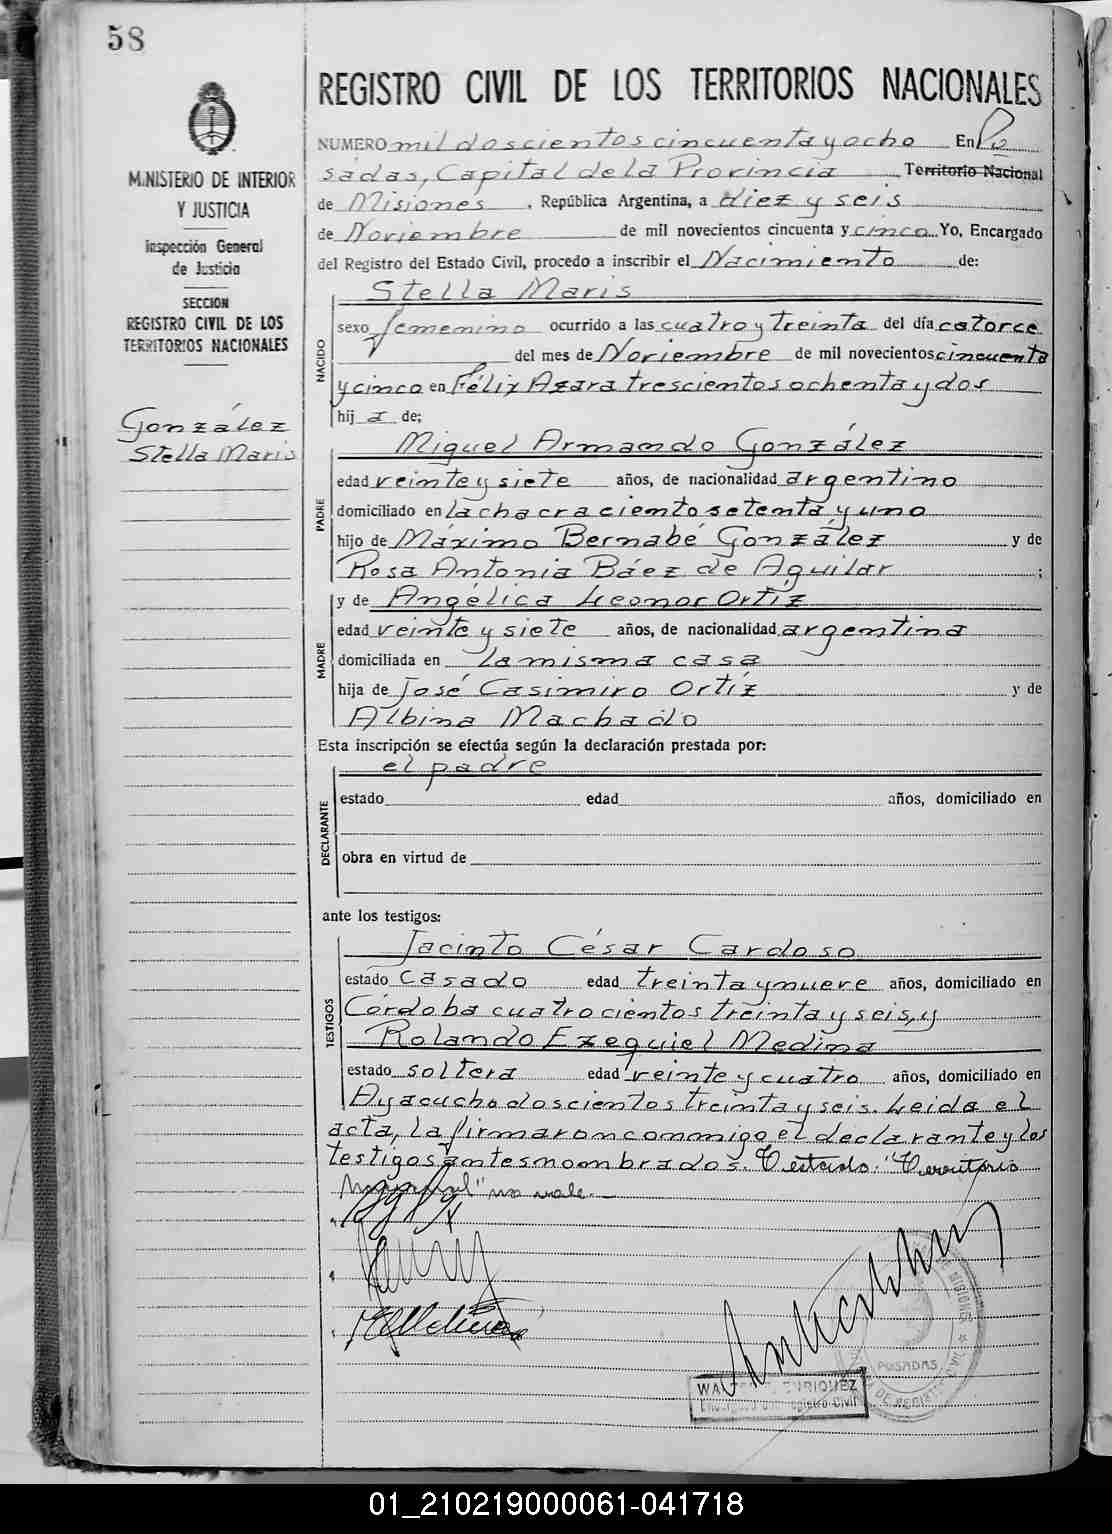 58
MINISTERIO DE INTERIOR
Y JUSTICIA
Inspección General
de Justicia
SECCION
REGISTRO CIVIL DE LOS
TERRITORIOS NACIONALES
González
Stella Maris
REGISTRO CIVIL DE LOS TERRITORIOS NACIONALES
NUMERO mil doscientos cincuenta y ocho En Po
sadas, Capital de la Provincia Territorio Nacional
de Misiones, República Argentina, a diez y seis
de Noviembre de mil novecientos cincuenta y cinco Yo, Encargado
del Registro del Estado Civil, procedo a inscribir el Nacimiento de:
NACIDO
Stella Maris
sexo femenino ocurrido a las cuatro y treinta del día catorce
del mes de Noviembre de mil novecientos cincuenta
y cinco en Félix Azara trescientos ochenta y dos
hij a de;
PADRE
Miguel Armando González
edad veinte y siete años, de nacionalidad argentino
domiciliado en la chacra ciento setenta y uno
hijo de Máximo Bernabé González y de
Rosa Antonia Báez de Aguilar ;
MADRE
y de Angélica Leonor Ortíz
edad veinte y siete años, de nacionalidad argentina
domiciliada en la misma casa
hija de José Casimiro Ortíz y de
Albina Machado
Esta inscripción se efectúa según la declaración prestada por:
DECLARANTE
el padre
estado edad años, domiciliado en
obra en virtud de
ante los testigos:
TESTIGOS
Jacinto César Cardoso
estado casado edad treinta y nueve años, domiciliado en
Córdoba cuatrocientos treinta y seis, y
Rolando Ezequiel Medina
estado soltero edad veinte y cuatro años, domiciliado en
Ayacucho doscientos treinta y seis. Leida el
acta, la firmaron conmigo el declarante y los
testigos antes nombrados. Testado: "Territorio
Nacional" no vale.
POSADAS
Encargado del Registro Civil
01_210219000061-041718